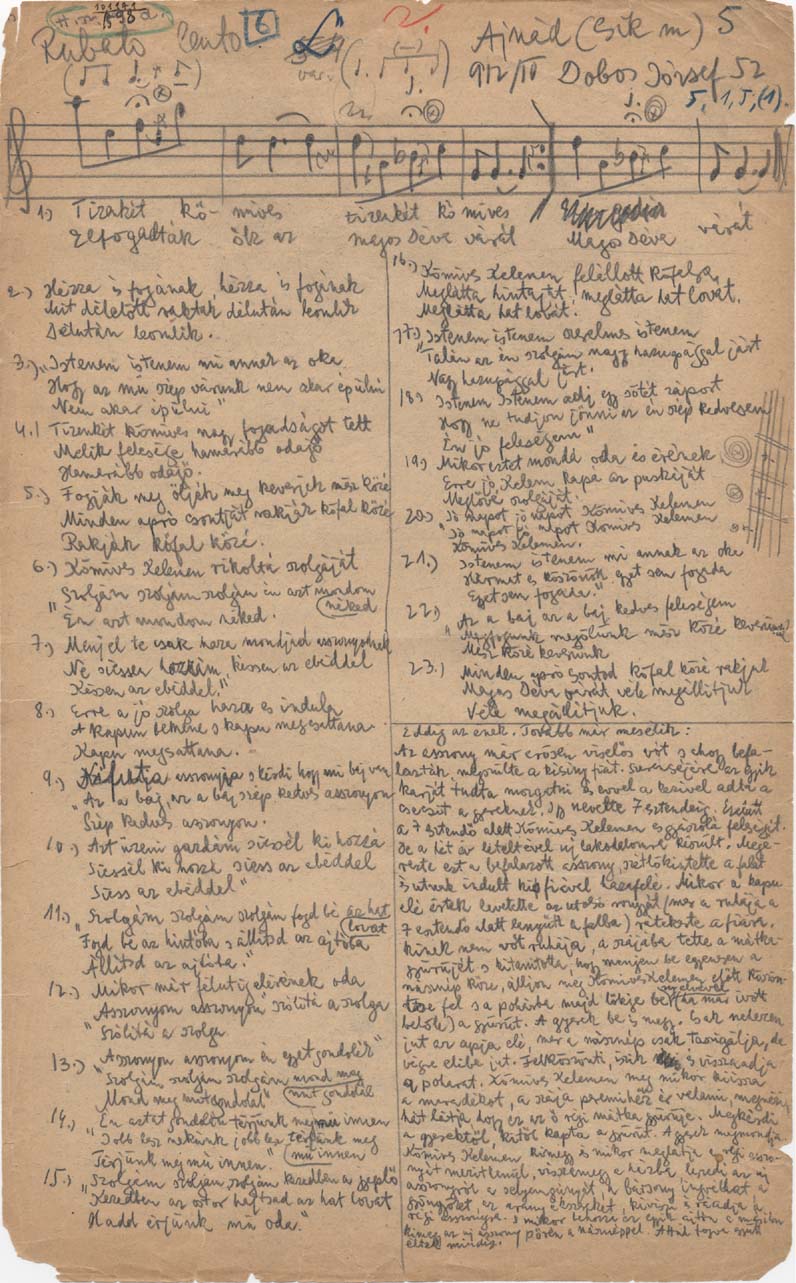 Rubato lento
6
2.
Ajnád (Csík m) 5
var.
912/IV Dobos József 52
5, 1, 5, (1).
1) Tizekét kő- mives tizenkét kő mives
Elfogadták ők az magos Déva várát Magos Déva várát
2.) Hézza is fogának, hézza is fogának
Mit déletőtt raktak délután leomlik
Délután leomlik.
3.) „Istenem istenem mi annek az oka
Hogy az mü szép várunk nem akar épülni
Nem akar épülni"
4.) Tizenkét kőmives nagy fogadságot tett
Melik felesége hamarébb odajő
Hamarább odajő.
5.) Fogják meg öljék meg keverjék mész közé
Minden apró csontját rakják kőfal közé
Rakják kőfal közé.
6.) Kőmives Kelemen rikoltá szolgáját
„Szolgám szolgám szolgám én azt mondom néked
Én azt mondom néked.
7.) Menj el te csak haza mondjad asszonyodnek
Ne siessen hozzám, késsen az ebéddel
Késsen az ebéddel."
8.) Erre a jó szolga haza és indula
A kapun bémene s kapu megsattana
Kapu megsattana.
9.) Kifutja asszonyja s kérdi hogy mi béj van
„Az a báj az a báj szép kedves asszonyom
Szép kedves asszonyom.
10.) Azt üzeni gazdám siessél ki hozzá
Siessél ki hozzá siess az ebéddel
Siess az ebéddel"
11.) „Szolgám szolgám szolgám fozd bé az hat lovat
Fojd bé az hintóba s állítsd az ajtóba
Állítsd az ajtóba."
12.) Mikor már félutij elérének oda
„Asszonyom asszonyom" szólítá a szolga
Szólítá a szolga
13.) „Asszonyom asszonyom én egyet gondolék"
„Szolgám szolgám szolgám mond meg mit gondolál
Mond meg mit gondolál"
14.) „Én aztat gondolám térjünk meg mü innen
Jobb lesz nekünk jobb lesz térjünk meg mü innen
Térjünk meg mü innen."
15.) „Szolgám szolgám szolgám kezedben a gyeplő
Kezedben az ostor hajtsad az hat lovat
Hadd érjünk mü oda."
16.) Kőmives Kelemen felállott kőfalra,
Meglátta hintaját, meglátta hat lovát,
Meglátta hat lovát.
17.) „Istenem istenem szerelmes istenem
Talán az én szolgám nagy hazugággal járt
Nagy hazugággal járt.
18.) Istenem Istenem adj egy sötét záport
Hogy ne tudjon jönni az én szép kedvesem
Én jó feleségem"
19.) Mikor eztet mondá oda és érének
Erre jó Kelem kapá az puskáját
Meglövé szolgáját.
20.) „Jó napot jó napot Kőmives Kelemen
Jó napot jó napot Kőmives Kelemen
Kőmives Kelemen.
21.) Istenem istenem mi annak az oka
Hármat es köszönök egyet sem fogada
Egyet sem fogada."
22.) „Az a baj az a baj kedves feleségem
Megfogunk megölünk mész közé keverünk
Mész közé keverünk
23.) Minden apró csontod kőfal közé rakjuk
Magas Déva várát véle megállítjuk
Véle megállítjuk.
Eddig az ének. Tovább már mesélik:
Az asszony már erősen viselős vót s ahogy befa-
lazták megszülte a kisinyfiát. Szerencséjére az egyik
karját tudta mozgatni és evvel a kezivel adta a
csecsit a gyereknek. Igy nevelte 7 esztendeig.
a 7 esztendő alatt Kőmives Kelemen es gyászolá feleségit.
De a hét év leteltével uj lakodalomra készült. Megé-
rezte ezt a befalazott asszony, szétlökintette a falat
és utnak indult kis fiével hazafelé. Mikor a kapu
elé értek levetette az utolsó rongyát (mer a ruhája a
7 esztendő alatt lenyűtt a falba) rátekste a fiára.
kinek nem vót ruhája, a szájába tette a mátka-
gyürüjét s kitanította, hogy menjen be egyenesen a
násznép közé, álljon meg Kőmives Kelemen előtt köszön-
tse fel s a pohárba majd lökje be nyelvével (ha már ivott
belőle) a gyürüt. A gyerek be is megy. Csak nehezen
jut az apja elé, mer a násznép csak taszigálja, de
végre elibe jut. Felköszönti, iszik s visszaadja
a poharat. Kőmives Kelemen meg mikor kiissza
a maradékot, a szája pereméhez és valami, megnézi
hát látja hogy ez az ő régi mátka gyürüje. Megkérdi
a gyerektől, kitől kapta a gyürüt. A gyerek megmondja
Kőmives Kelemen kimegy és mikor meglátja a régi asszo-
nyát mezittlenül, visszamegy a házba, lezedi az uj
asszonyról a selyemgúnyát, a bársony
gyöngyöket, az arany ékszereket, kiviszi s ráadja a
régi asszonyra. S mikor béhozza az egyik ajtón a másikon
kimeg az uj asszony pőrén a násznéppel. Attul fogva együtt
éltek mindig.